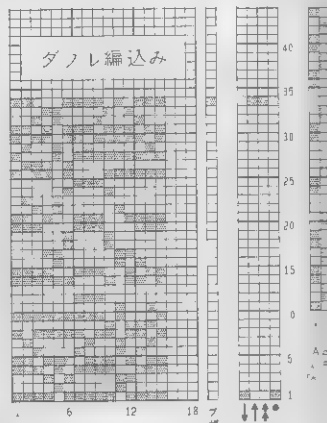 ダブル編込み
40
35
30
25
20
15
0
5
1
6 12 18
ブ